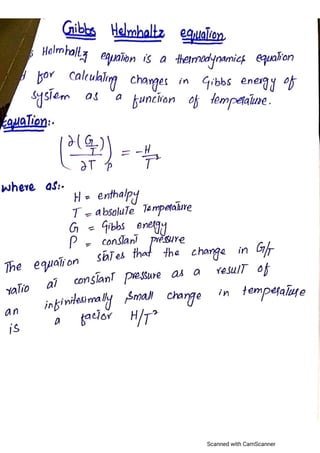 Gibbs Helmholtz equation
s Helmholtz equation is a thermodynamics equation
d for calculating changes in Gibbs energy of
system as a function of temperature.
Equation:-
(∂(G/T)/∂T)P = -H/T²
where as:-
H = enthalpy
T = absolute Temperature
G = Gibbs energy
P = constant pressure
The equation states that the change in G/T
ratio at constant pressure as a result of
an infinitesimally small change in temperature
is a factor H/T²
Scanned with CamScanner